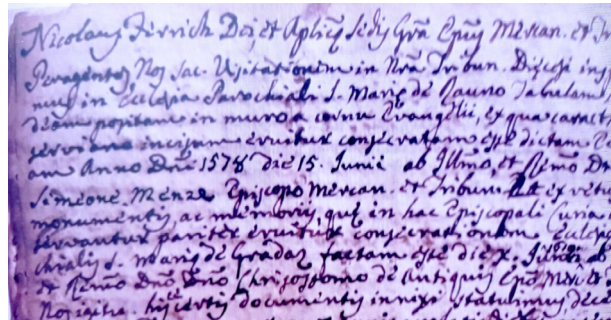 Nicolaus Ferrich Dei et Aplicę Sedis Grã Epũs Mercan. et Tri
Peragentes Nos Sac. Visitationem in Nrã Tribun. Diœcesi in
mus in Ecclesia Parochiali S. Marię de Rauno tabulam
deam positam in muro a cornu Evangelii, ex qua caract
incisum eruitur consecratam esse dictam
am Anno Dñi 1578 die 15. Junii ab Illmo, et Rẽmo D
Simeone Menze Episcopo Mercan. et Tribun. ex vetu
monumentis, ac memoriis, quę in hac Episcopali Curia
servantur pariter eruitur consecrationem Ecclesię
chialis S. Marię de Gradaz factam esse die X. ab
et Rẽmo Dño Dño Chrisostomo de Antiquis Epõ
Nos igitur hisce certis documentis innixi statuimus, dec